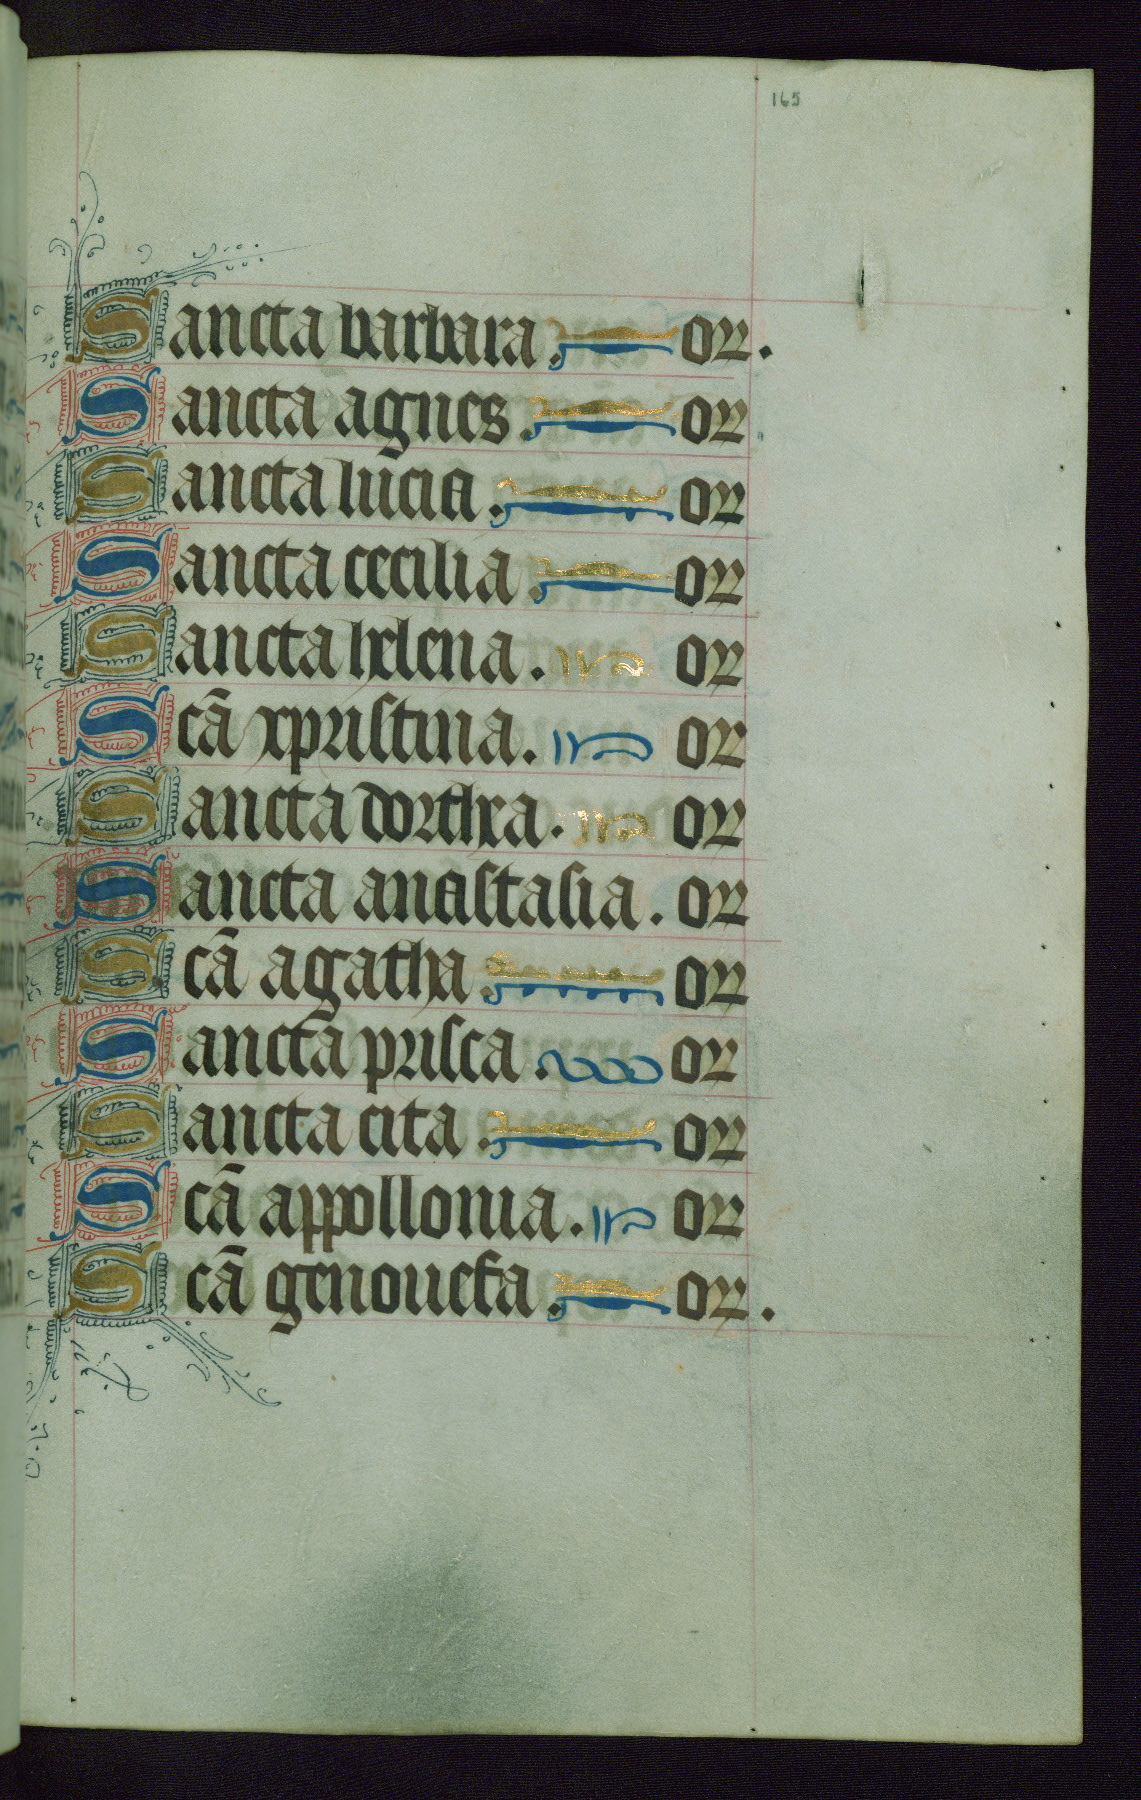 165
Sancta barbara. or.
Sancta agnes. or
Sancta lucia. or
Sancta cecilia. or
Sancta helena. or
Scã xpristina. or
Sancta dorthea. or
Sancta anastasia. or
Scã agatha or
Sancta prisca. or
Sancta cita. or
Scã appollonia. or
Scã genouefa. or.